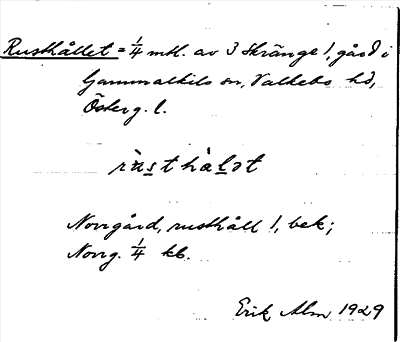 Rusthållet = 1/4 mtl. av 3 Skränge /, gård i
Gammalkils sn, Valkebo hd,
Österg. l.
rùsthàlət
Norrgård, rusthåll /, bek;
Norrg. 1/4 kb.
Erik Alm 1929